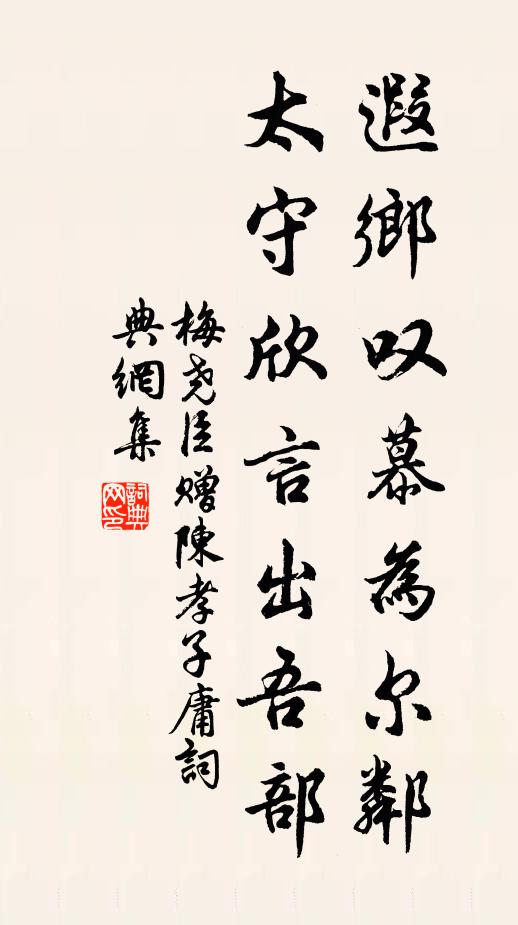 遐鄉叹慕為尔鄰
太守欣言出吾部
梅尧臣赠陳孝子庸詞
典網集
詞典网印